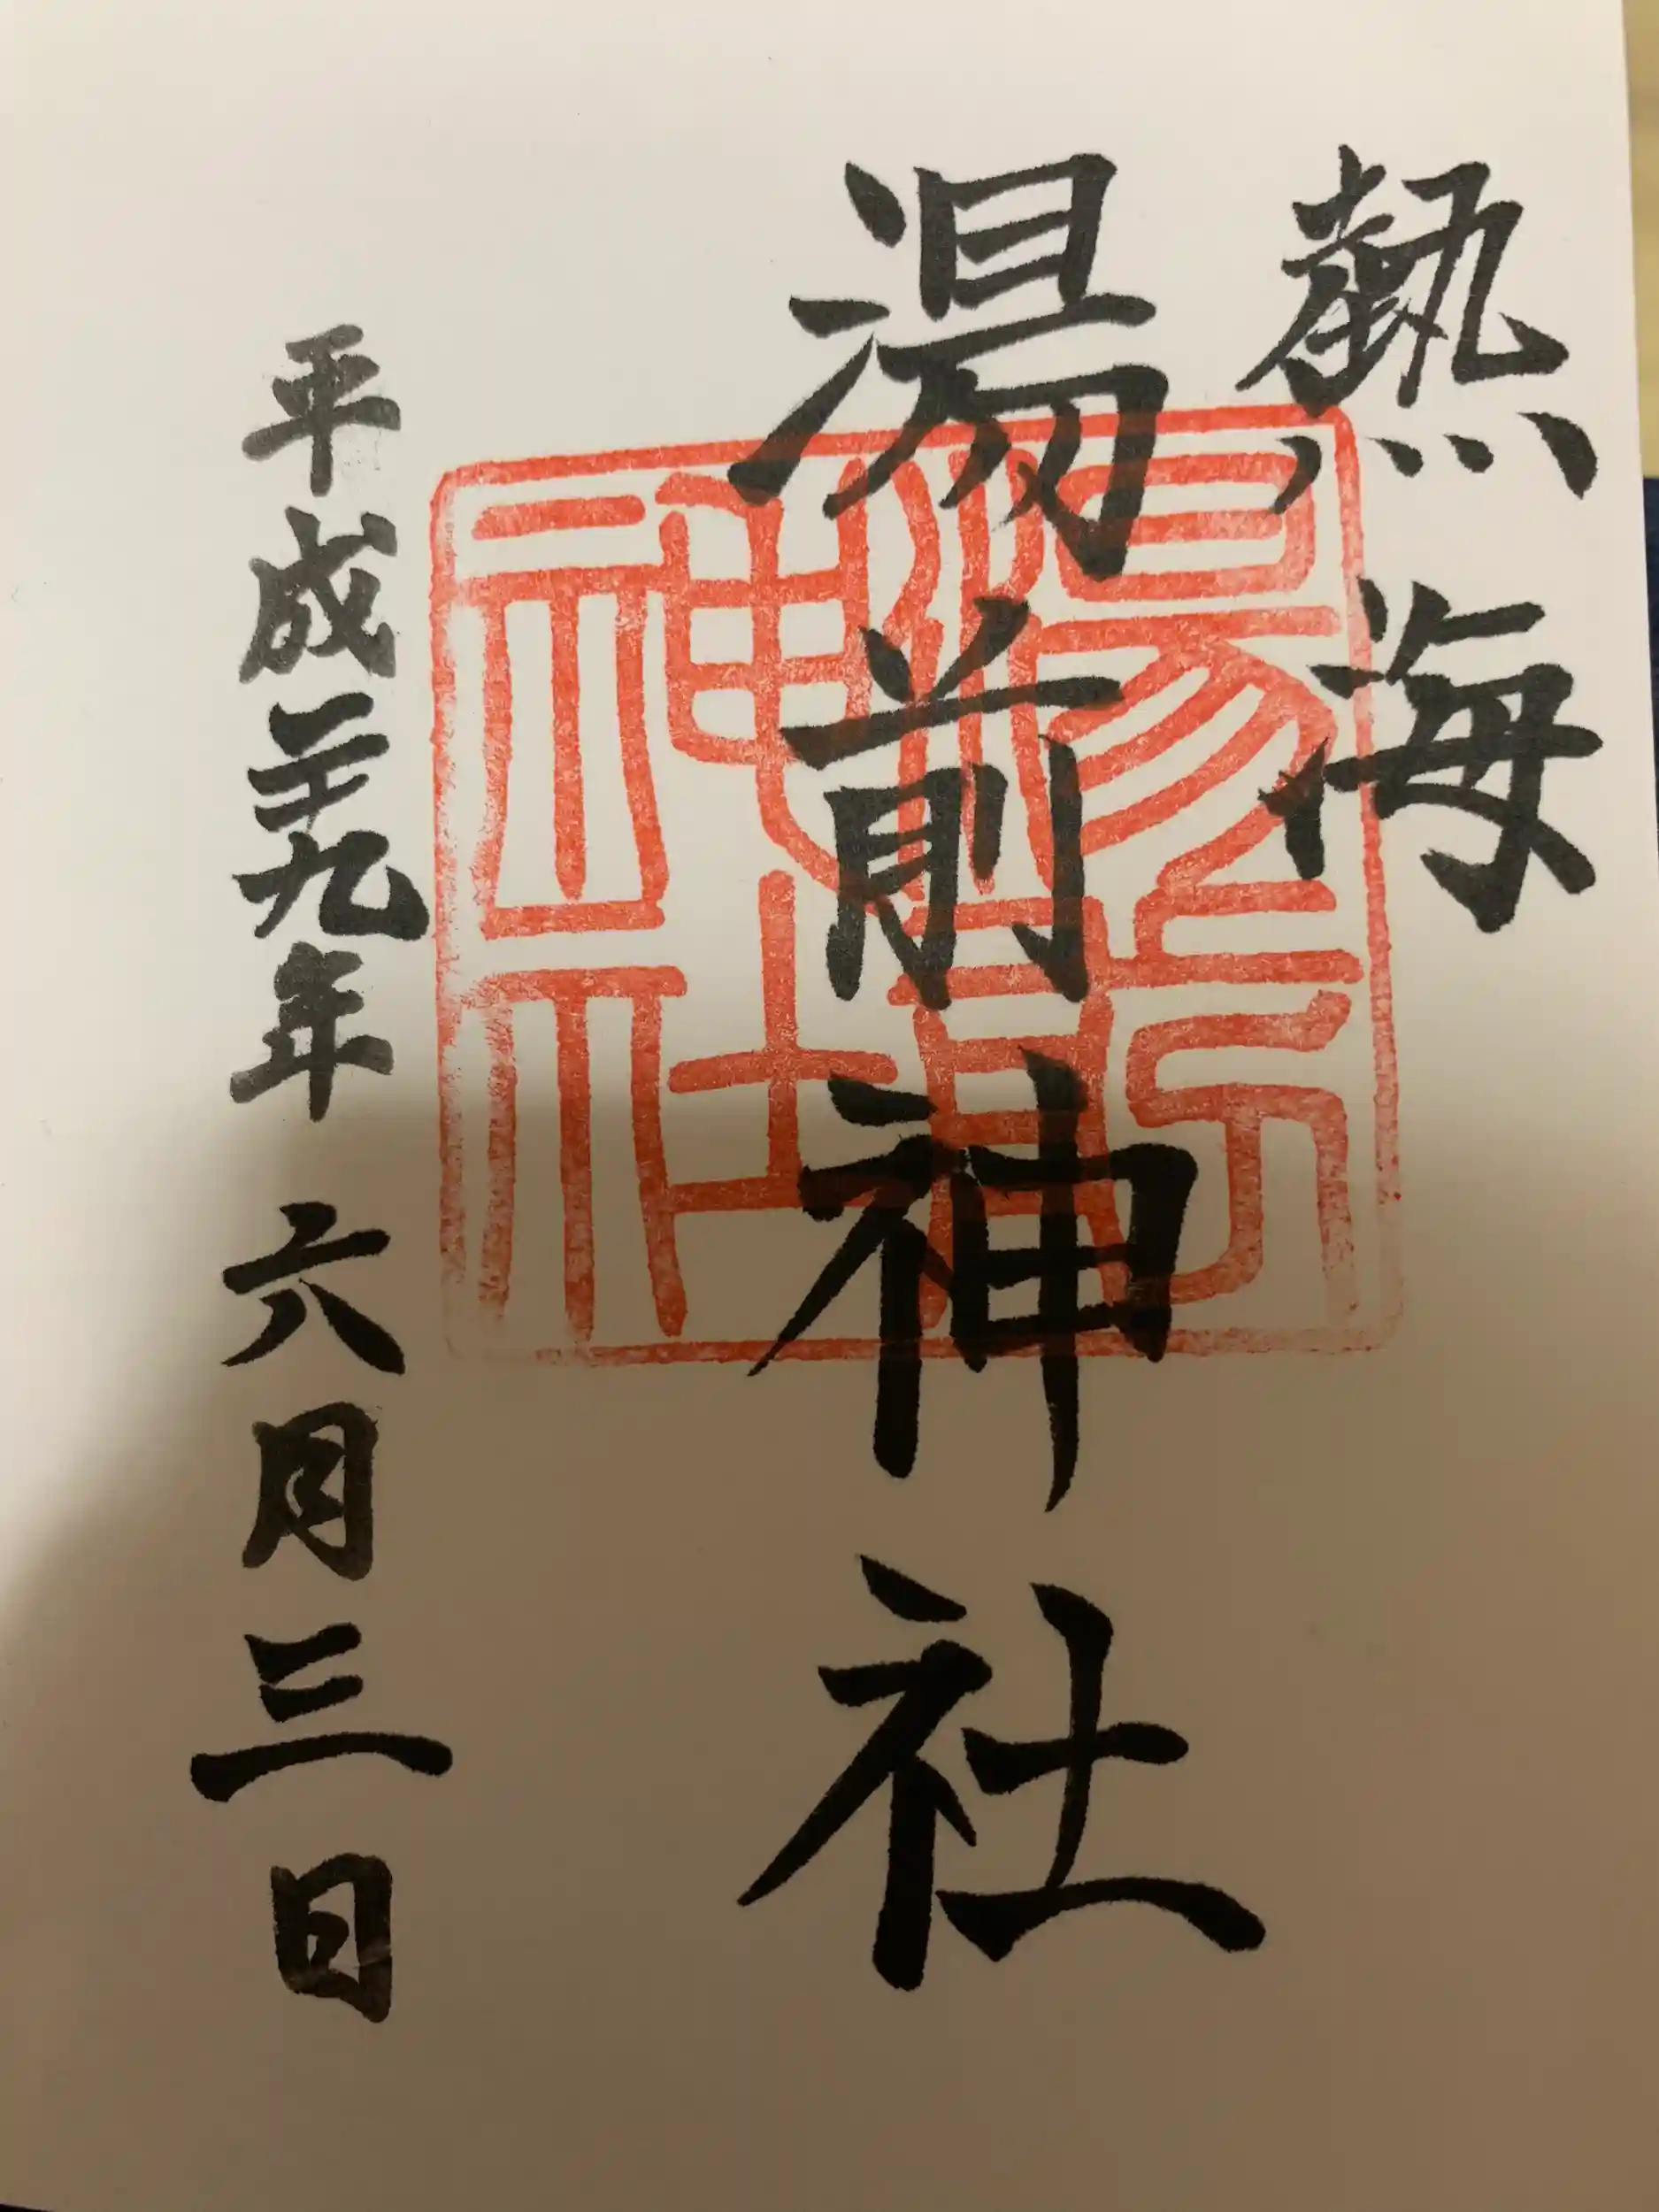 熱海
湯前神社
湯前神社
平成二十九年六月三日